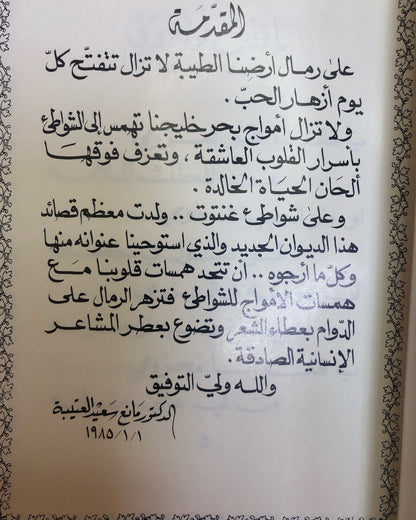 المقدّمة
على رمال أرضنا الطيبة لا تزال تتفتّح كلّ
يوم أزهار الحبّ .
ولا تزال أمواج بحر خليجنا تهمس إلى الشواطئ
بأسرار القلوب العاشقة ، وتعزف فوقها
ألحان الحياة الخالدة .
وعلى شواطئ غنتوت .. ولدت معظم قصائد
هذا الديوان الجديد والذي استوحينا عنوانه منها
وكلّ ما أرجوه .. أن تتحد همسات قلوبنا مع
همسات الأمواج للشواطئ فتزهر الرمال على
الدّوام بعطاء الشعر وتضوع بعطر المشاعر
الإنسانية الصادقة .
والله وليّ التوفيق
الدكتور مانع سعيد العتيبة
١٩٨٥/١/١